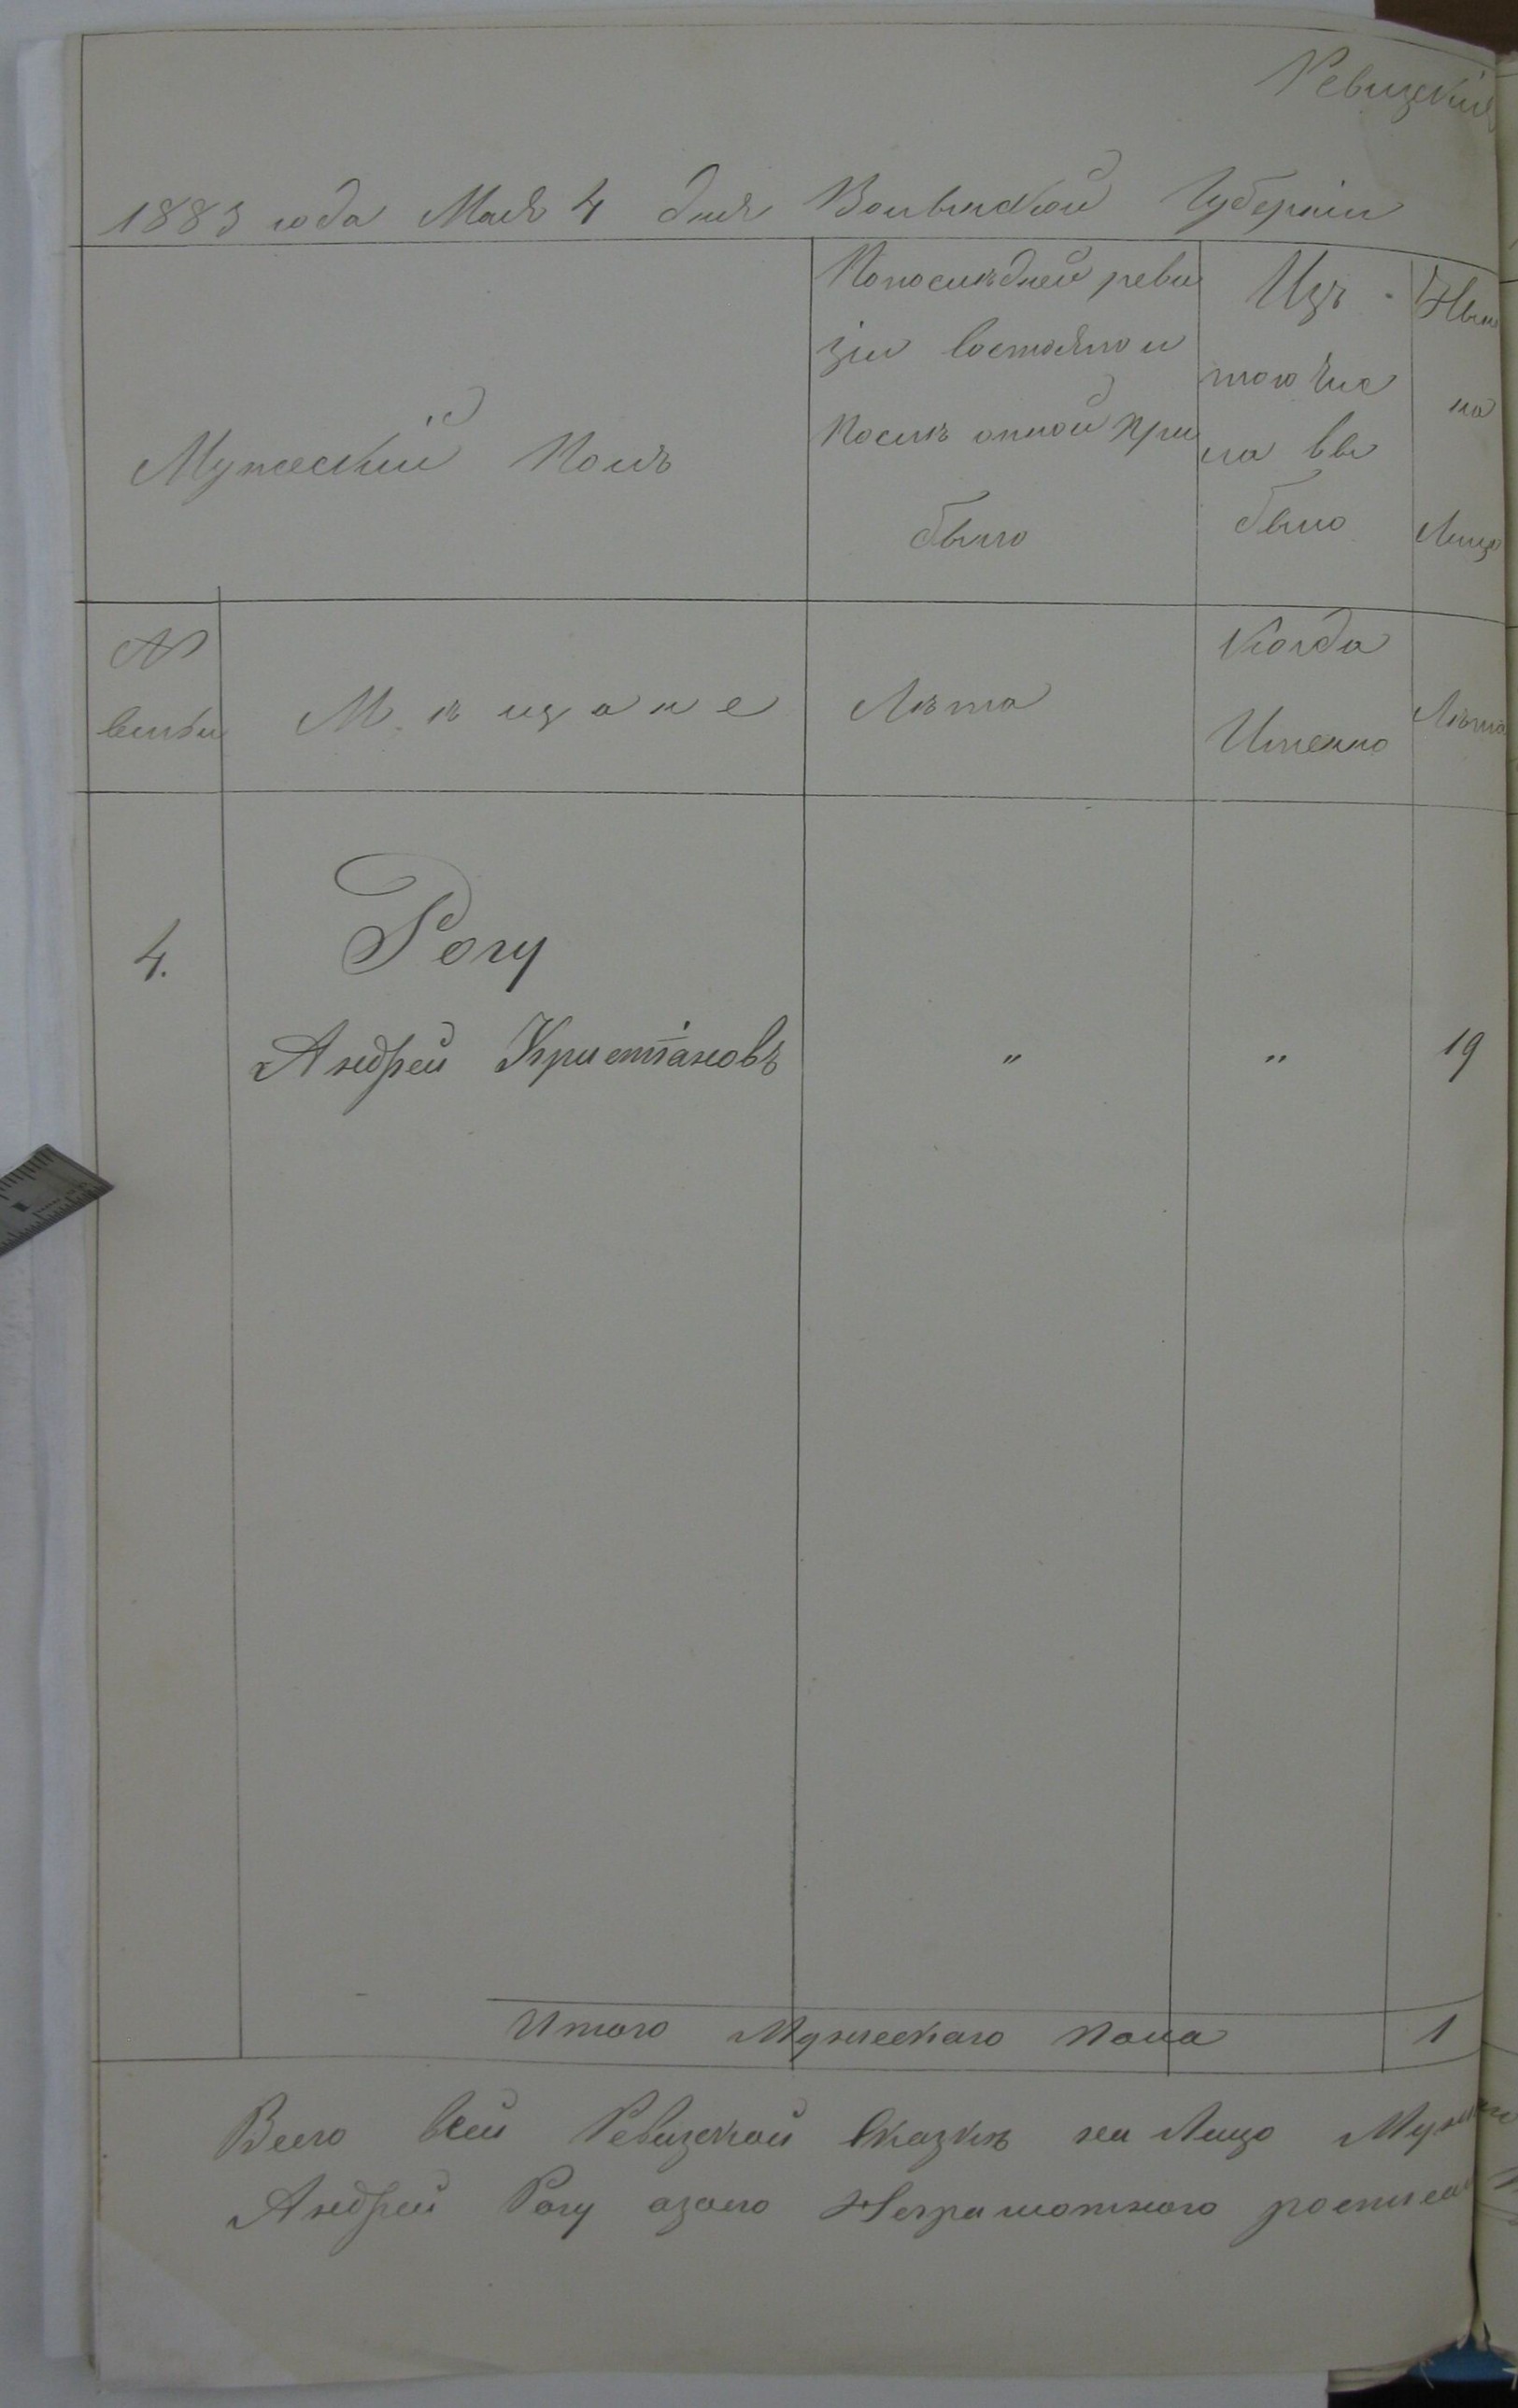 Ревизския
1883 года Мая 4 дня Волынской Губерніи
Мужескій Полъ
По последней реви
зіи состояло и
после онной при
было
Изъ
того чис
ла вы
было
Нын
на
Лицо
№
семьи
Мѣщане
Лѣта
Когда
Именно
Лѣта
4.
Рогу
Андрей Христіановъ
"
"
19
Итого Мужескаго пола
1
Всего в сей Ревизской Сказкѣ на Лицо
Андрей Рогу а за него Неграмотного